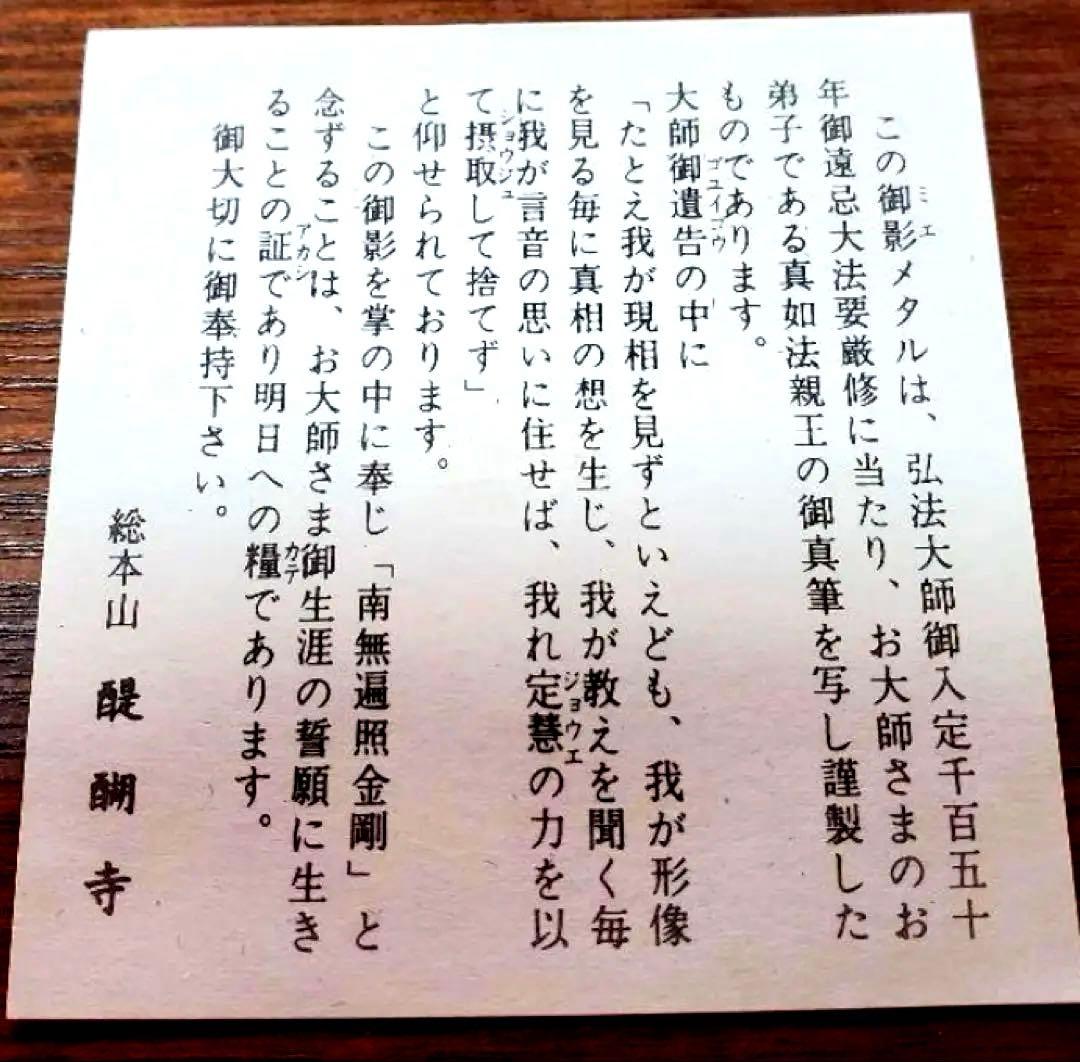 この御影メタルは、弘法大師御入定千百五十
年御遠忌大法要厳修に当たり、お大師さまのお
弟子である真如法親王の御真筆を写し謹製した
ものであります。
大師御遺告の中に
「たとえ我が現相を見ずといえども、我が形像
を見る毎に真相の想を生じ、我が教えを聞く毎
に我が言音の思いに住せば、我れ定慧の力を以
て摂取して捨てず」
と仰せられております。
この御影を掌の中に奉じ「南無遍照金剛」と
念ずることは、お大師さま御生涯の誓願に生き
ることの証であり明日への糧であります。
御大切に御奉持下さい。
総本山 醍醐寺